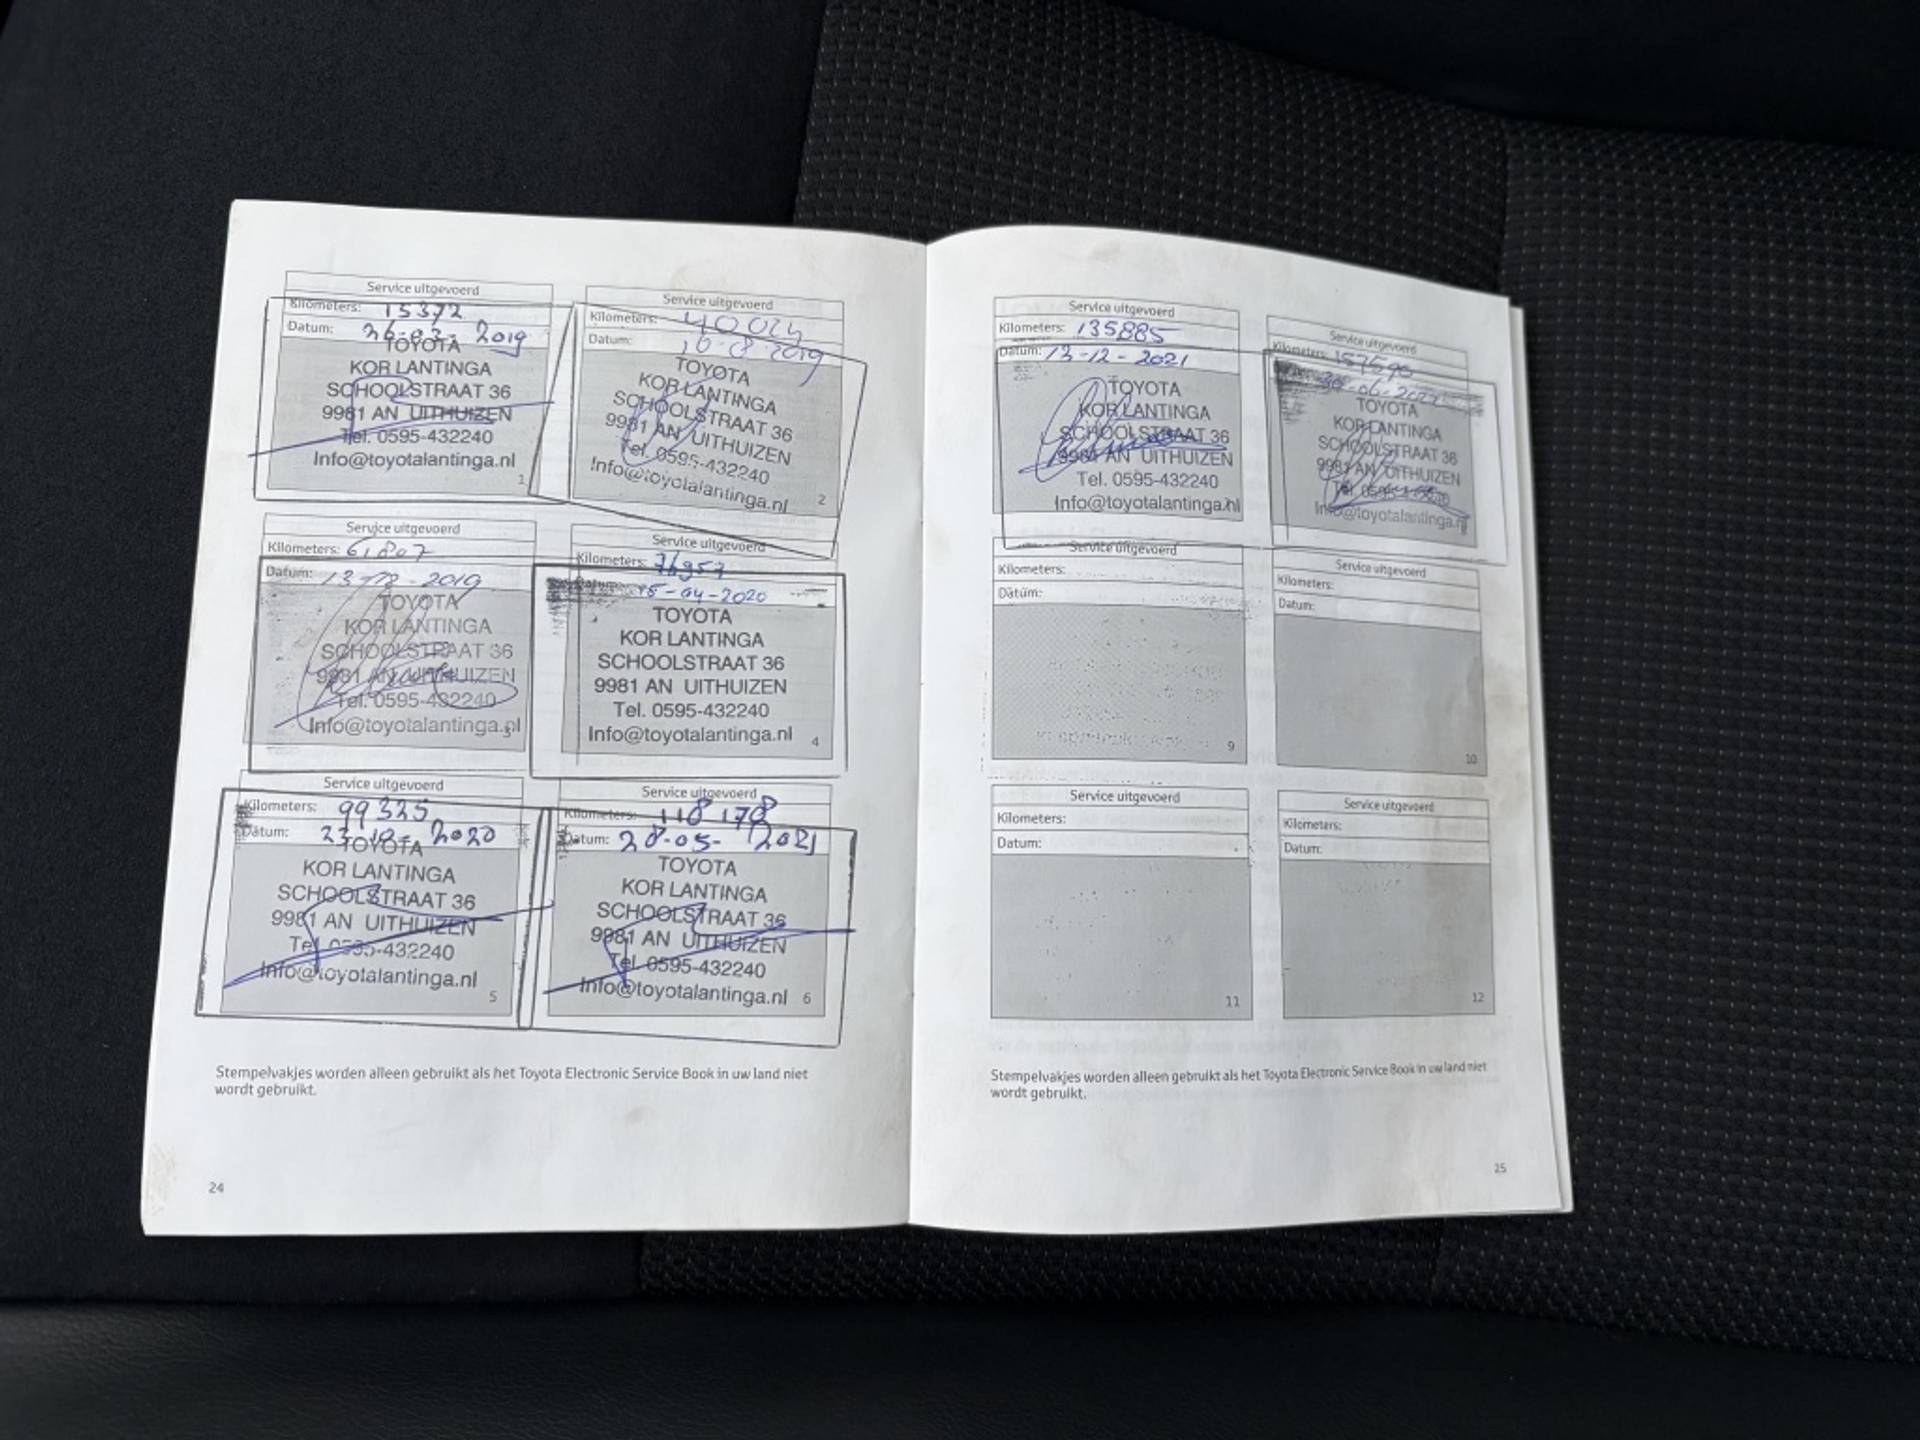 Service uitgevoerd
Kilometers: 15372
Datum: 26-03-2019
TOYOTA
KOR LANTINGA
SCHOOLSTRAAT 36
9981 AN UITHUIZEN
Tel. 0595-432240
Info@toyotalantinga.nl
1
Service uitgevoerd
Kilometers: 40024
Datum: 16-8-2019
TOYOTA
KOR LANTINGA
SCHOOLSTRAAT 36
9981 AN UITHUIZEN
Tel. 0595-432240
Info@toyotalantinga.nl
2
Service uitgevoerd
Kilometers: 61807
Datum: 13-12-2019
TOYOTA
KOR LANTINGA
SCHOOLSTRAAT 36
9981 AN UITHUIZEN
Tel. 0595-432240
Info@toyotalantinga.nl
3
Service uitgevoerd
Kilometers: 76957
Datum: 15-04-2020
TOYOTA
KOR LANTINGA
SCHOOLSTRAAT 36
9981 AN UITHUIZEN
Tel. 0595-432240
Info@toyotalantinga.nl
4
Service uitgevoerd
Kilometers: 99325
Datum: 2020
TOYOTA
KOR LANTINGA
SCHOOLSTRAAT 36
9981 AN UITHUIZEN
Tel. 0595-432240
Info@toyotalantinga.nl
5
Service uitgevoerd
Kilometers: 118178
Datum: 28-05-2021
TOYOTA
KOR LANTINGA
SCHOOLSTRAAT 36
9981 AN UITHUIZEN
Tel. 0595-432240
Info@toyotalantinga.nl
6
Stempelvakjes worden alleen gebruikt als het Toyota Electronic Service Book in uw land niet
wordt gebruikt.
24
Service uitgevoerd
Kilometers: 135885
Datum: 13-12-2021
TOYOTA
KOR LANTINGA
SCHOOLSTRAAT 36
9981 AN UITHUIZEN
Tel. 0595-432240
Info@toyotalantinga.nl
Service uitgevoerd
Kilometers: 157590
30-06-2022
TOYOTA
KOR LANTINGA
SCHOOLSTRAAT 36
9981 AN UITHUIZEN
Tel. 0595-432240
Info@toyotalantinga.nl
Service uitgevoerd
Kilometers:
Datum:
9
Service uitgevoerd
Kilometers:
Datum:
10
Service uitgevoerd
Kilometers:
Datum:
11
Service uitgevoerd
Kilometers:
Datum:
12
Stempelvakjes worden alleen gebruikt als het Toyota Electronic Service Book in uw land niet
wordt gebruikt.
25